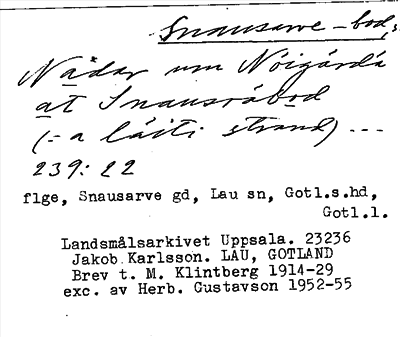 Snausarve-bod,s
Nådar um Nöigårda
at Snausrábod
(:- a láiti strand) ---
239:22
flge, Snausarve gd, Lau sn, Gotl.s.hd,
Gotl.l.
Landsmålsarkivet Uppsala. 23236
Jakob Karlsson. LAU, GOTLAND
Brev t. M. Klintberg 1914-29
exc. av Herb. Gustavson 1952-55